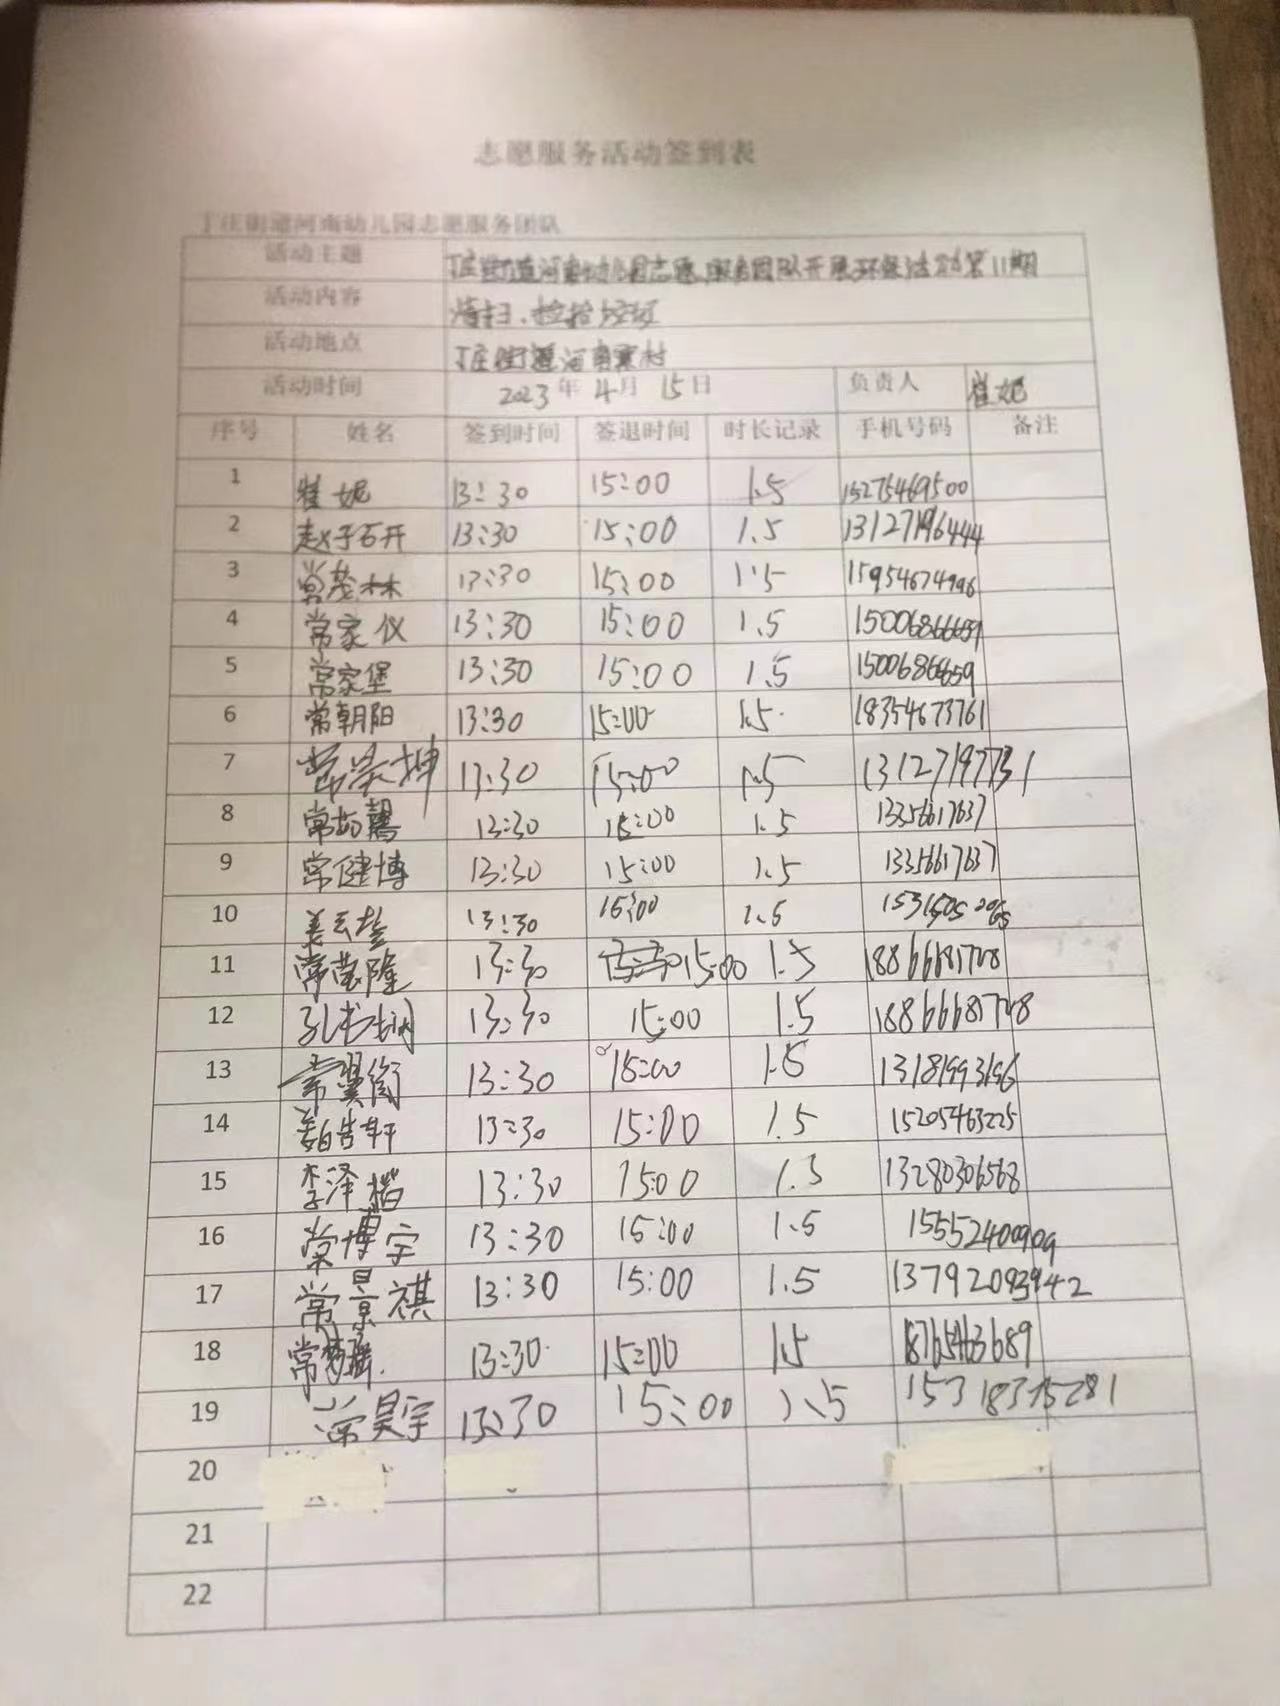 志愿服务活动签到表
丁庄街道河南幼儿园志愿服务团队
活动主题 丁庄街道河南幼儿园志愿服务团队开展环保活动第11期
活动内容 清扫、捡拾垃圾
活动地点 丁庄街道河南寨村
活动时间 2023年4月15日 负责人 崔妮
序号 姓名 签到时间 签退时间 时长记录 手机号码 备注
1 崔妮 13:30 15:00 1.5 15275469500
2 赵子石开 13:30 15:00 1.5 13127196444
3 常茂林 13:30 15:00 1.5 15954674996
4 常家仪 13:30 15:00 1.5
5 常家堡 13:30 15:00 1.5
6 常朝阳 13:30 15:00 1.5 18354673761
7 常 坤 13:30 15:00 1.5 13127197731
8 常 馨 13:30 15:00 1.5 13356617637
9 常健博 13:30 15:00 1.5 13356617637
10 姜 13:30 15:00 1.5
11 常 隆 13:30 15:00 1.5 18866681728
12 孔 13:30 15:00 1.5 18866681728
13 常翼衡 13:30 15:00 1.5 13181993196
14 轩 13:30 15:00 1.5 15205463225
15 李泽楷 13:30 15:00 1.5 13280306568
16 常博宇 13:30 15:00 1.5 15552400909
17 常景祺 13:30 15:00 1.5 13792093942
18 常 13:30 15:00 1.5 18765463689
19 常昊宇 13:30 15:00 1.5 15318375281
20
21
22